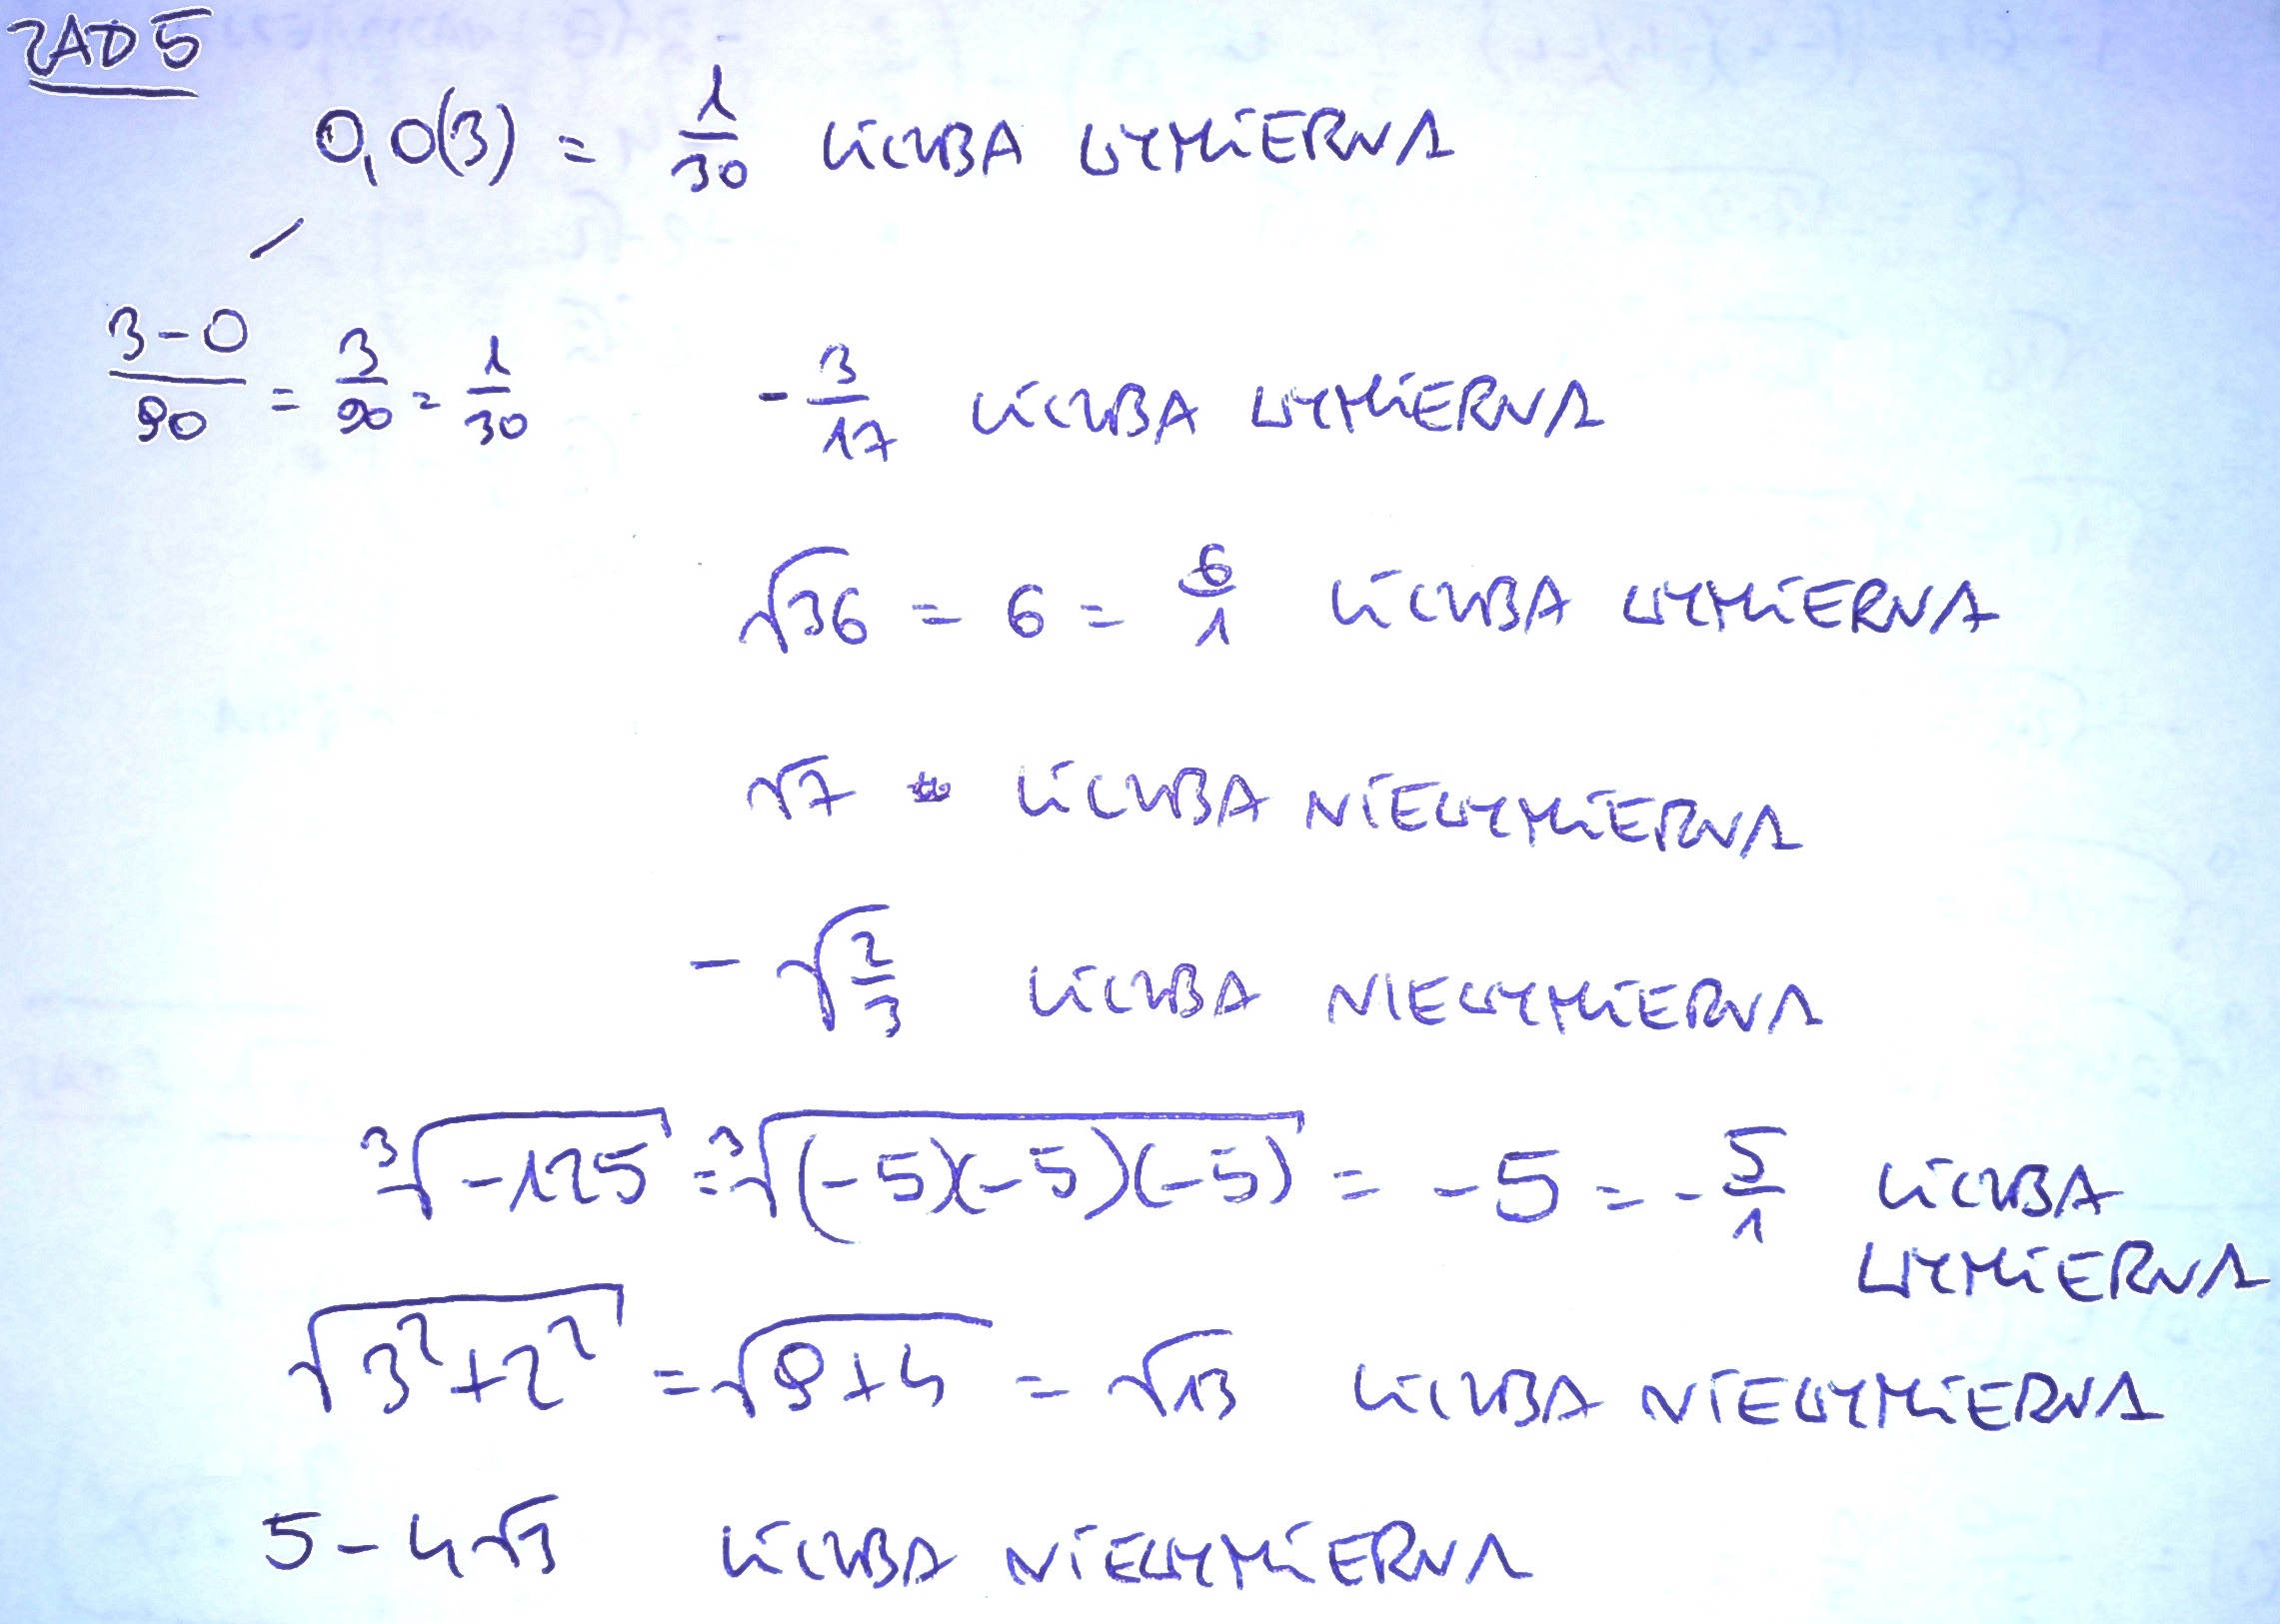 ZAD 5
0,0(3) = 1/30 LICZBA WYMIERNA
(3-0)/90 = 3/90 = 1/30
-3/17 LICZBA WYMIERNA
√36 = 6 = 6/1 LICZBA WYMIERNA
√7 LICZBA NIEWYMIERNA
-√(2/3) LICZBA NIEWYMIERNA
³√(-125) = ³√((-5)(-5)(-5)) = -5 = -5/1 LICZBA
WYMIERNA
√(3²+2²) = √(9+4) = √13 LICZBA NIEWYMIERNA
5-4√3 LICZBA NIEWYMIERNA